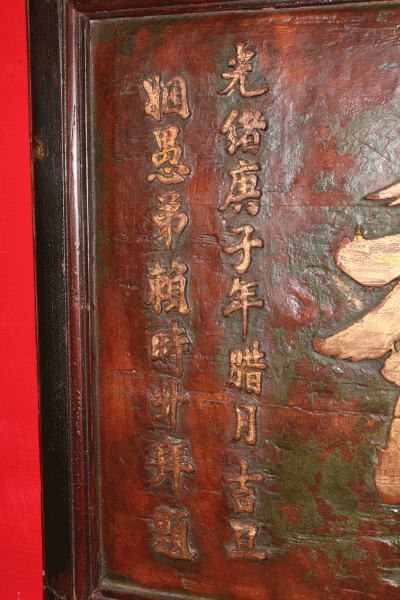 光緒庚子年腊月吉旦
姻愚弟賴時升拜題